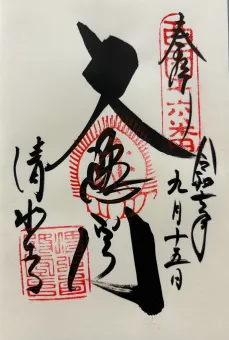 奉拝
西国十六番
令和 年
九月十五日
大悲閣
清水寺